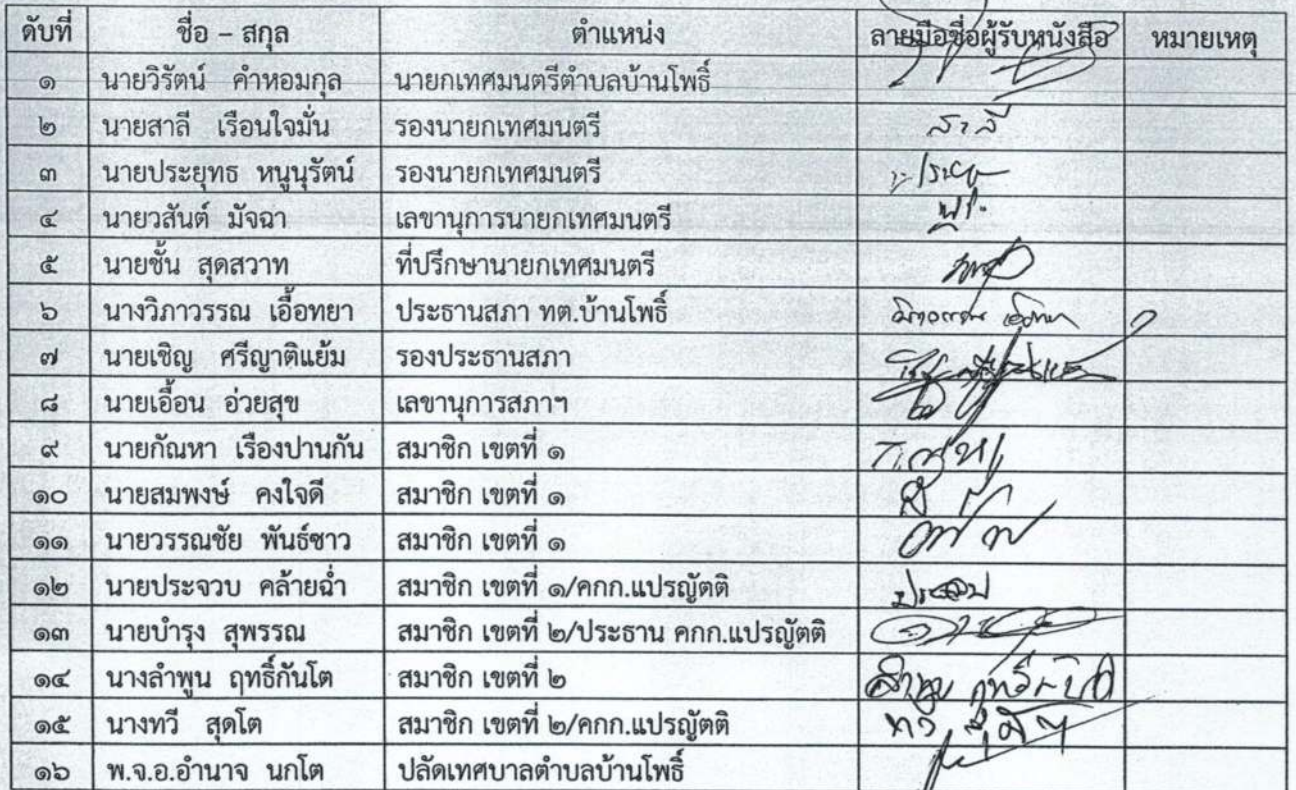 ดับที่ ชื่อ – สกุล ตำแหน่ง ลายมือชื่อผู้รับหนังสือ หมายเหตุ
๑ นายวิรัตน์ คำหอมกุล นายกเทศมนตรีตำบลบ้านโพธิ์
๒ นายสาลี เรือนใจมั่น รองนายกเทศมนตรี สาลี
๓ นายประยุทธ หนูนุรัตน์ รองนายกเทศมนตรี
๔ นายวสันต์ มัจฉา เลขานุการนายกเทศมนตรี
๕ นายชั้น สุดสวาท ที่ปรึกษานายกเทศมนตรี
๖ นางวิภาวรรณ เอื้อทยา ประธานสภา ทต.บ้านโพธิ์ วิภาวรรณ เอื้อทยา
๗ นายเชิญ ศรีญาติแย้ม รองประธานสภา
๘ นายเอื้อน อ่วยสุข เลขานุการสภาฯ
๙ นายกัณหา เรืองปานกัน สมาชิก เขตที่ ๑ กัณหา
๑๐ นายสมพงษ์ คงใจดี สมาชิก เขตที่ ๑
๑๑ นายวรรณชัย พันธ์ชาว สมาชิก เขตที่ ๑
๑๒ นายประจวบ คล้ายฉ่ำ สมาชิก เขตที่ ๑/คกก.แปรญัตติ ประจวบ
๑๓ นายบำรุง สุพรรณ สมาชิก เขตที่ ๒/ประธาน คกก.แปรญัตติ
๑๔ นางลำพูน ฤทธิ์กันโต สมาชิก เขตที่ ๒
๑๕ นางทวี สุดโต สมาชิก เขตที่ ๒/คกก.แปรญัตติ
๑๖ พ.จ.อ.อำนาจ นกโต ปลัดเทศบาลตำบลบ้านโพธิ์